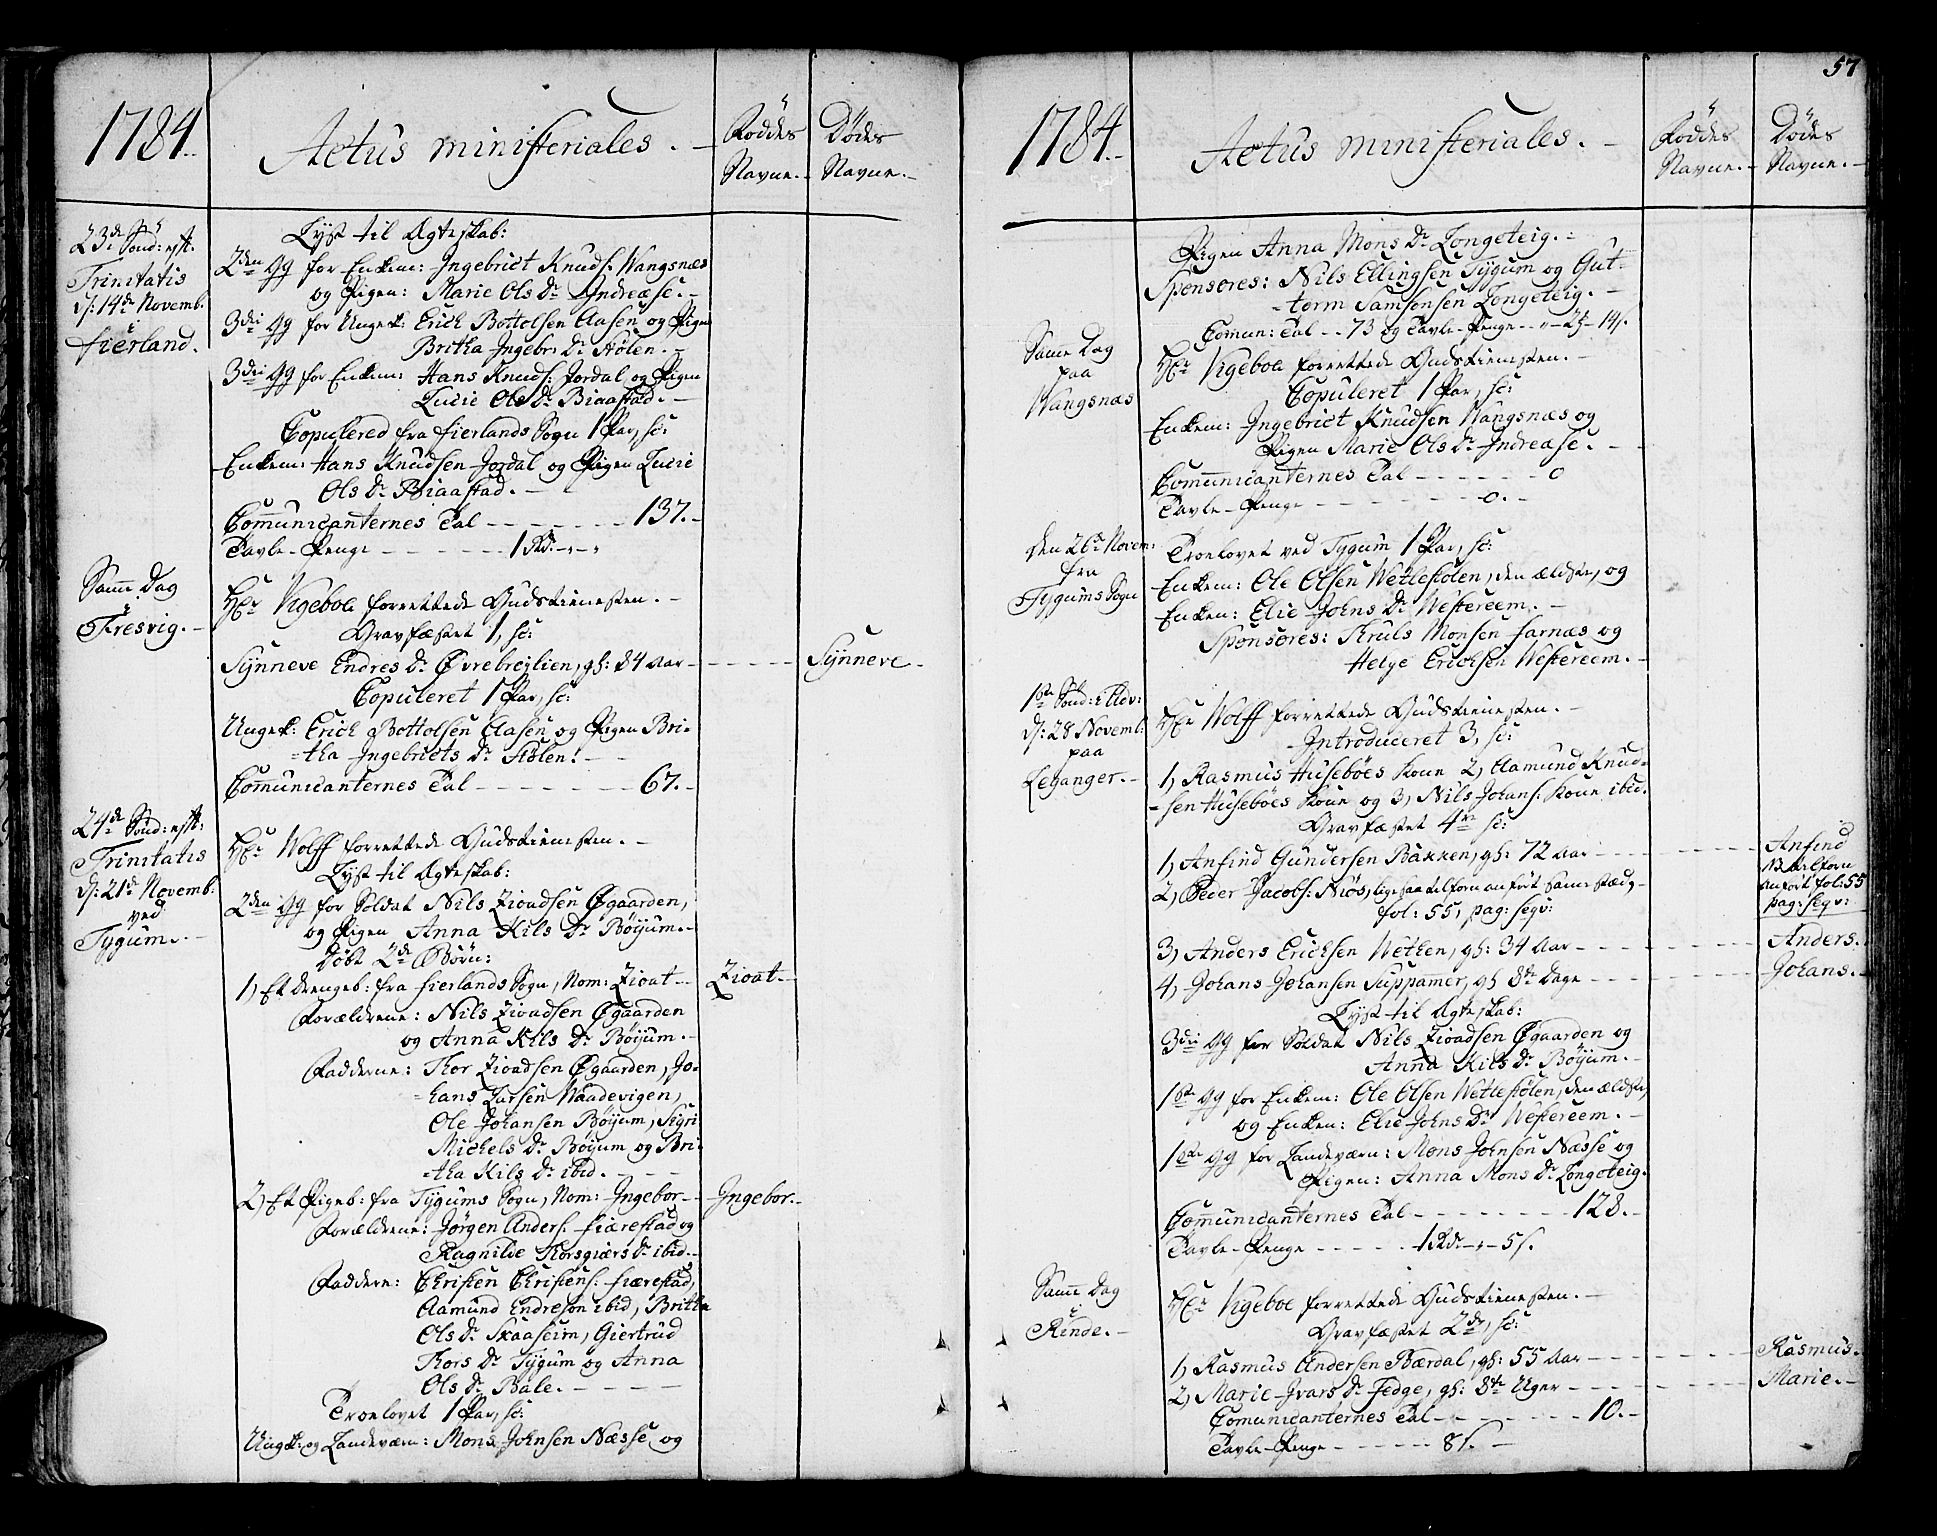 1784.
Actus ministeriales.
Föddes Navne.
Dödes Navne.
23de Sönd: eft. Trinitatis
d: 14de Novemb.
i
Fierland.
Lyst til Ægteskab:
2den Gg for Enkem: Ingebrict Knuds: Wangsnæs
og Pigen: Marie Ols Dr Indreæse.
3die Gg for Ungek: Erick Bottolsen Aasen og Pigen
Britha Ingebr: Dr Stölen.
3die Gg for Enkem: Hans Knuds: Jordal og Pigen
Lucie Ols Dr Biaastad.
Copulered fra Fierlands Sogn 1 Par, sc:
Enkem: Hans Knudsen Jordal og Pigen Lucie
Ols Dr Biaastad.
Communicanternes Tal - - - 137.
Tavle-Penge - - - 1 Rd: - „ - „
Samme Dag
i
Fresvig.
Hr Vigeboe forrettede Gudstienesten.
Gravfæstet 1, sc:
Synneve Endres Dr Øvrebreylien, gl: 84 Aar - - - Synneve.
Copuleret 1 Par, sc:
Ungek: Erick Bottolsen Aasen og Pigen Bri-
=tha Ingebricts Dr Stölen.
Communicanternes Tal - - - 67.
24de Sönd: eft:
Trinitatis
d: 21de Novemb:
ved
Tygum.
Hr Wolff forrettede Gudstienesten.
Lyst til Ægteskab:
2den Gg for Soldat Nils Lioadsen Øgaarden,
og Pigen Anna Kils Dr Böyum.
Döbt 2de Börn:
1) Et Drengeb: fra Fierlands Sogn, Nom: Lioat - - Lioat
Forældrene: Nils Lioadsen Øgaarden
og Anna Kils Dr Böyum.
Fadderne: Thor Lioadsen Øgaarden, Jo-
=hans Larsen Waadevigen,
Ole Johansen Böyum, Sigri
Mickels Dr Böyum og Bri-
=tha Kils Dr ibid.
2) Et Pigeb: fra Tygums Sogn, Nom: Ingebor - - Ingebor.
Forældrene: Jørgen Anders: Fiærestad og
Ragnilde Thorsgiærs Dr ibid.
Faddere: Christen Christens: Fiærestad,
Aamund Endreson ibid, Britha
Ols Dr Skaasheim, Giertrud
Thors Dr Tygum og Anna
Ols Dr Bale.
Troelovet 1 Par, sc:
Ungk: og Landeværn: Mons Johnsen Næsse og
57
1784.
Actus ministeriales.
Föddes Navne.
Dödes Navne.
Pigen Anna Mons Dr Longeteig.
Sponsores: Nils Ellingsen Tygum og Gut-
=torm Samsonsen Longeteig.
Comun: Tal - - 73 og Tavle-Penge - - „ - 2 - 14 s.
Samme Dag
paa
Wangsnæs
Hr Vigeboe forrettede Gudstienesten.
Copuleret 1 Par, sc:
Enkem: Ingebrict Knudsen Wangsnæs og
Pigen Marie Ols Dr Indreæse.
Communicanternes Tal - - - 0
Tavle-Penge - - - 0.
den 26de Novem:
fra
Tygums Sogn
Troelovet ved Tygum 1 Par, sc:
Enkem: Ole Olsen Wetlestölen, den ældste, og
Enken: Elie Johns Dr Westereem.
Sponsores: Truls Monsen Farnæs og
Helge Ericksen Westereem.
1ste Sönd: i Adv:
d: 28 Novemb:
paa
Leganger.
Hr Wolff forrettede Gudstienesten.
Introduceret 3, sc:
1) Rasmus Huseböes Kone 2) Aamund Knud-
=sen Huseböes Kone og 3) Nils Johans: Kone ibid.
Gravfæstet 4re sc:
1) Anfind Gundersen Bakken, gl: 72 Aar - - - Anfind
2) Peder Jacobs: Niös, ligesaa tilforn anfört samme stædz
fol: 55, pag: seqv:
NB tilforn
anfört fol: 55
pag: seqv:
3) Anders Ericksen Wetken, gl: 34 Aar - - - Anders.
4) Johans Johansen Suppammer, gl 8te Dage - - - Johans.
Lyst til Ægteskab:
3die Gg for Soldat Nils Lioadsen Øgaarden og
Anna Kils Dr Böyum.
1ste Gg for Enkem: Ole Olsen Wetlestölen, den ældste,
og Enken: Elie Johns Dr Westereem.
1ste Gg for Landeværn: Mons Johnsen Næsse og
Pigen: Anna Mons Dr Longeteig.
Communicanternes Tal - - - 128.
Tavle-Penge - - - 1 Rd - „ - 5 s.
Samme Dag
i
Rinde.
Hr Vigeboe forrettede Gudstienesten.
Gravfæstet 2de, sc:
1) Rasmus Andersen Bærdal, gl: 55 Aar - - - Rasmus.
2) Marie Ivars Dr Fedge, gl: 8te Uger - - - Marie.
Comunicanternes Tal - - - 10.
Tavle-Penge - - - 8 s.